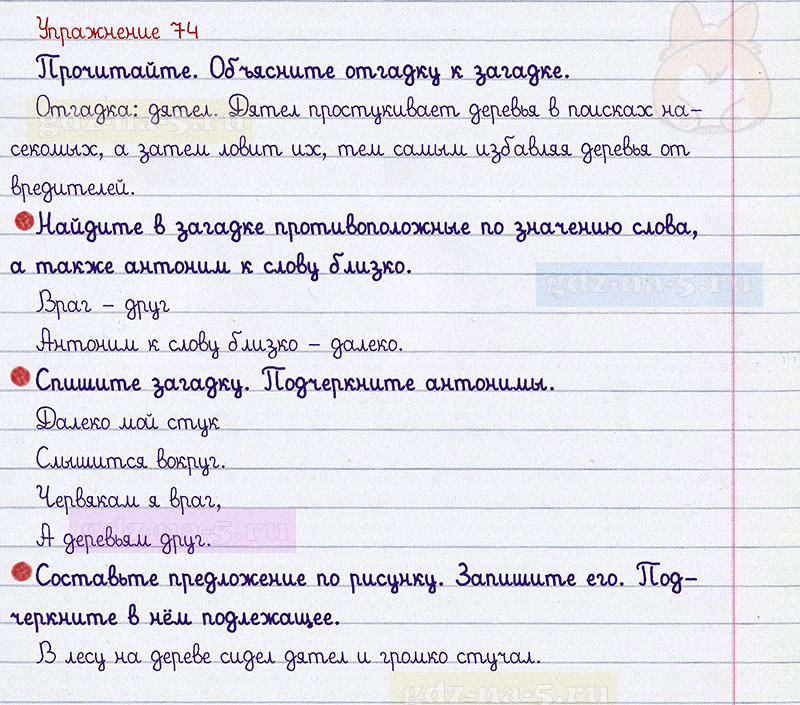 Упражнение 74
Прочитайте. Объясните отгадку к загадке.
Отгадка: дятел. Дятел простукивает деревья в поисках на-
gdz-na-5.ru
секомых, а затем ловит их, тем самым избавляя деревья от
вредителей.
Найдите в загадке противоположные по значению слова,
а также антоним к слову близко.
gdz-na-5.ru
Враг – друг
Антоним к слову близко – далеко.
Спишите загадку. Подчеркните антонимы.
Далеко мой стук
Слышится вокруг.
Червякам я враг,
gdz-na-5.ru
А деревьям друг.
Составьте предложение по рисунку. Запишите его. Под-
черкните в нём подлежащее.
В лесу на дереве сидел дятел и громко стучал.
gdz-na-5.ru